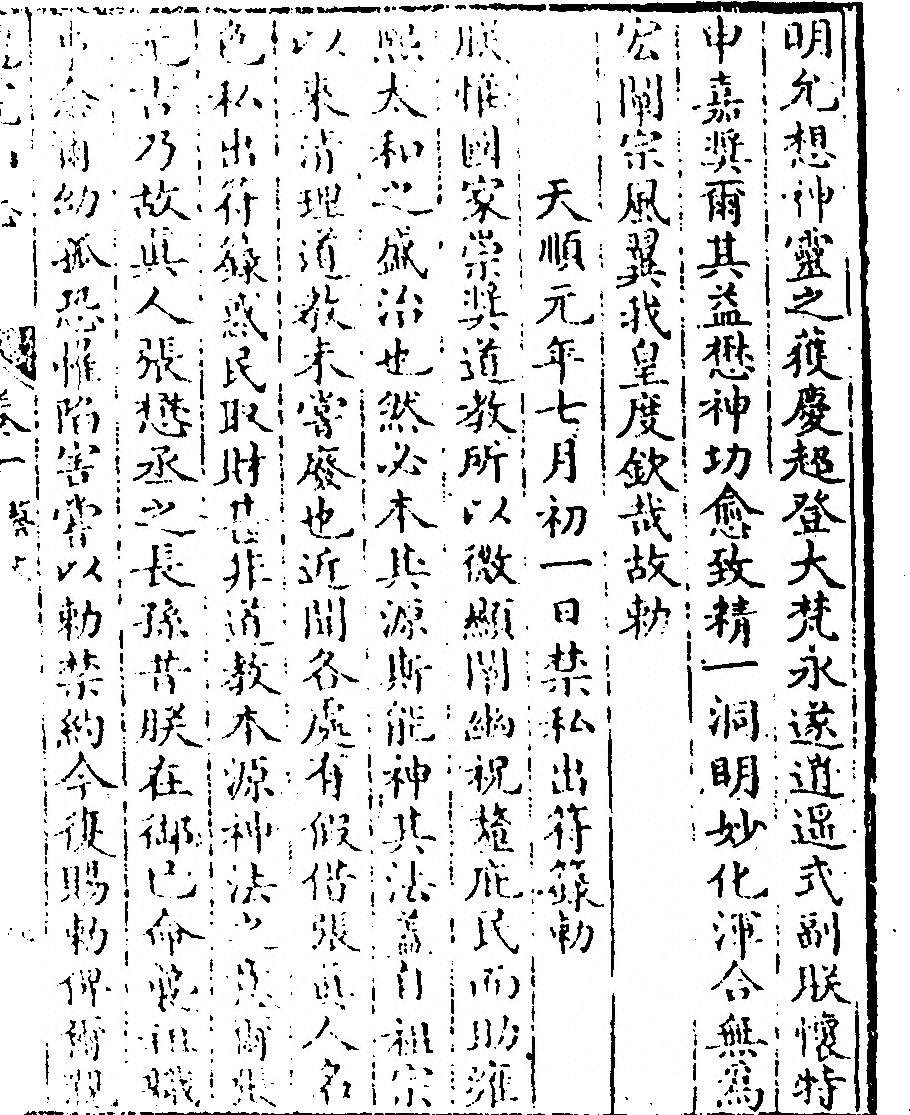 明允想神靈之獲慶超登大梵永遂逍遥式副朕懷特
申嘉奬爾其益懋神功愈致精一洞明妙化渾合無為
宏闡宗風翼我皇度欽哉故勅
天順元年七月初一日禁私出符籙勅
朕惟國家崇奬道教所以微顯闡幽祝釐庇民而助雍
熙太和之盛治也然必本其源斯能神其法蓋自祖宗
以來清理道教未嘗廢也近聞各處有假借張真人名
色私出符籙惑民取財甚非道教本源神法之意爾張
元吉乃故真人張懋丞之長孫昔朕在御已命襲祖職
念爾幼孤恐惟陷害嘗以勅禁約今復賜勅俾爾
卷一